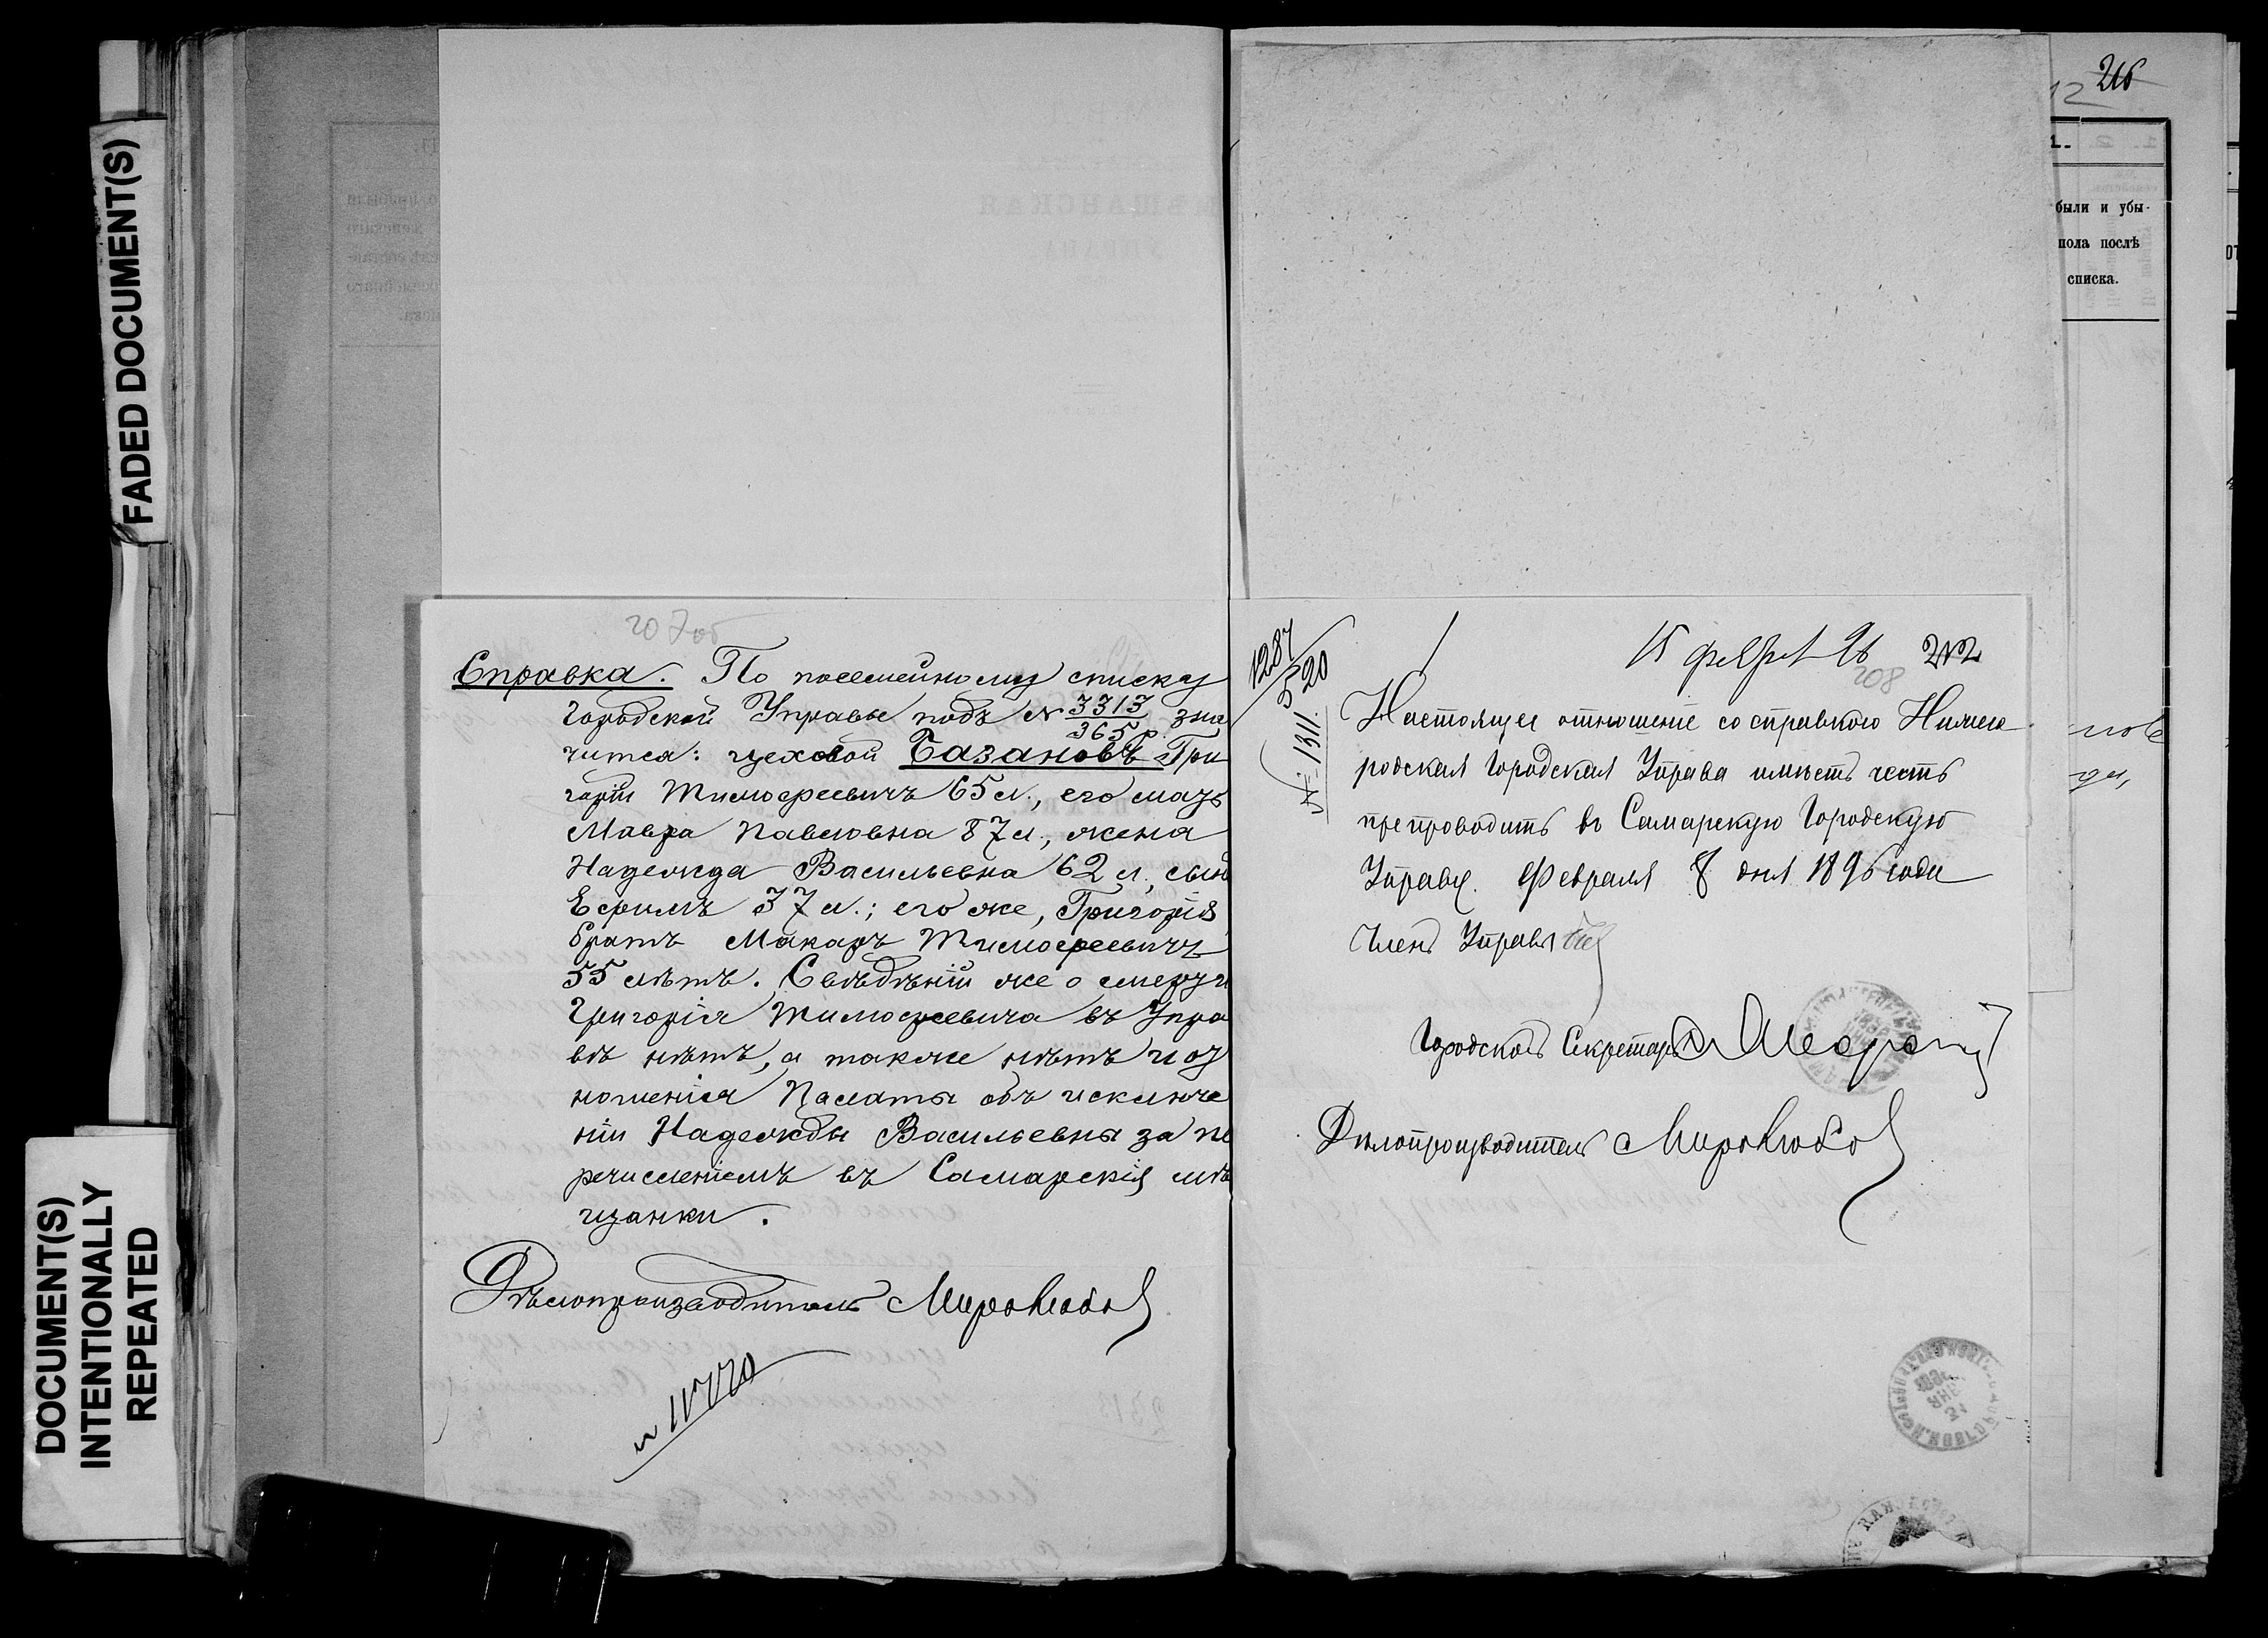 FADED DOCUMENT(S)
DOCUMENT(S)
INTENTIONALLY
REPEATED
207об
Справка. По посемейному списку
Городской Управы подъ № 3313/365 р. зна
чится: цеховой Базановъ Гри
горій Тимофеевичъ 65 л., его мать
Мавра Павловна 87 л., жена
Надежда Васильевна 62 л., сынъ
Ефимъ 37 л.; его же, Григорія
братъ Макаръ Тимофеевичъ
55 лѣтъ. Свѣдѣній же о смерти
Григорія Тимофеевича въ Упра
вѣ нѣтъ, а также нѣтъ и от
ношенія Палаты объ исключе
ніи Надежды Васильевны за пе
речисленіемъ въ Самарскія мѣ
щанки.
Дѣлопроизводитель Миролюбов
15 февр 96
212
208
1287/520
№ 1311.
Настоящее отношение со справкою Нижего
родская Городская Управа имѣетъ честь
препроводить въ Самарскую Городскую
Управу. Февраля 8 дня 1896 года
Членъ Управы
Городской Секретарь
Дѣлопроизводитель Миролюбов
12
1.
были и убы-
пола послѣ
списка.